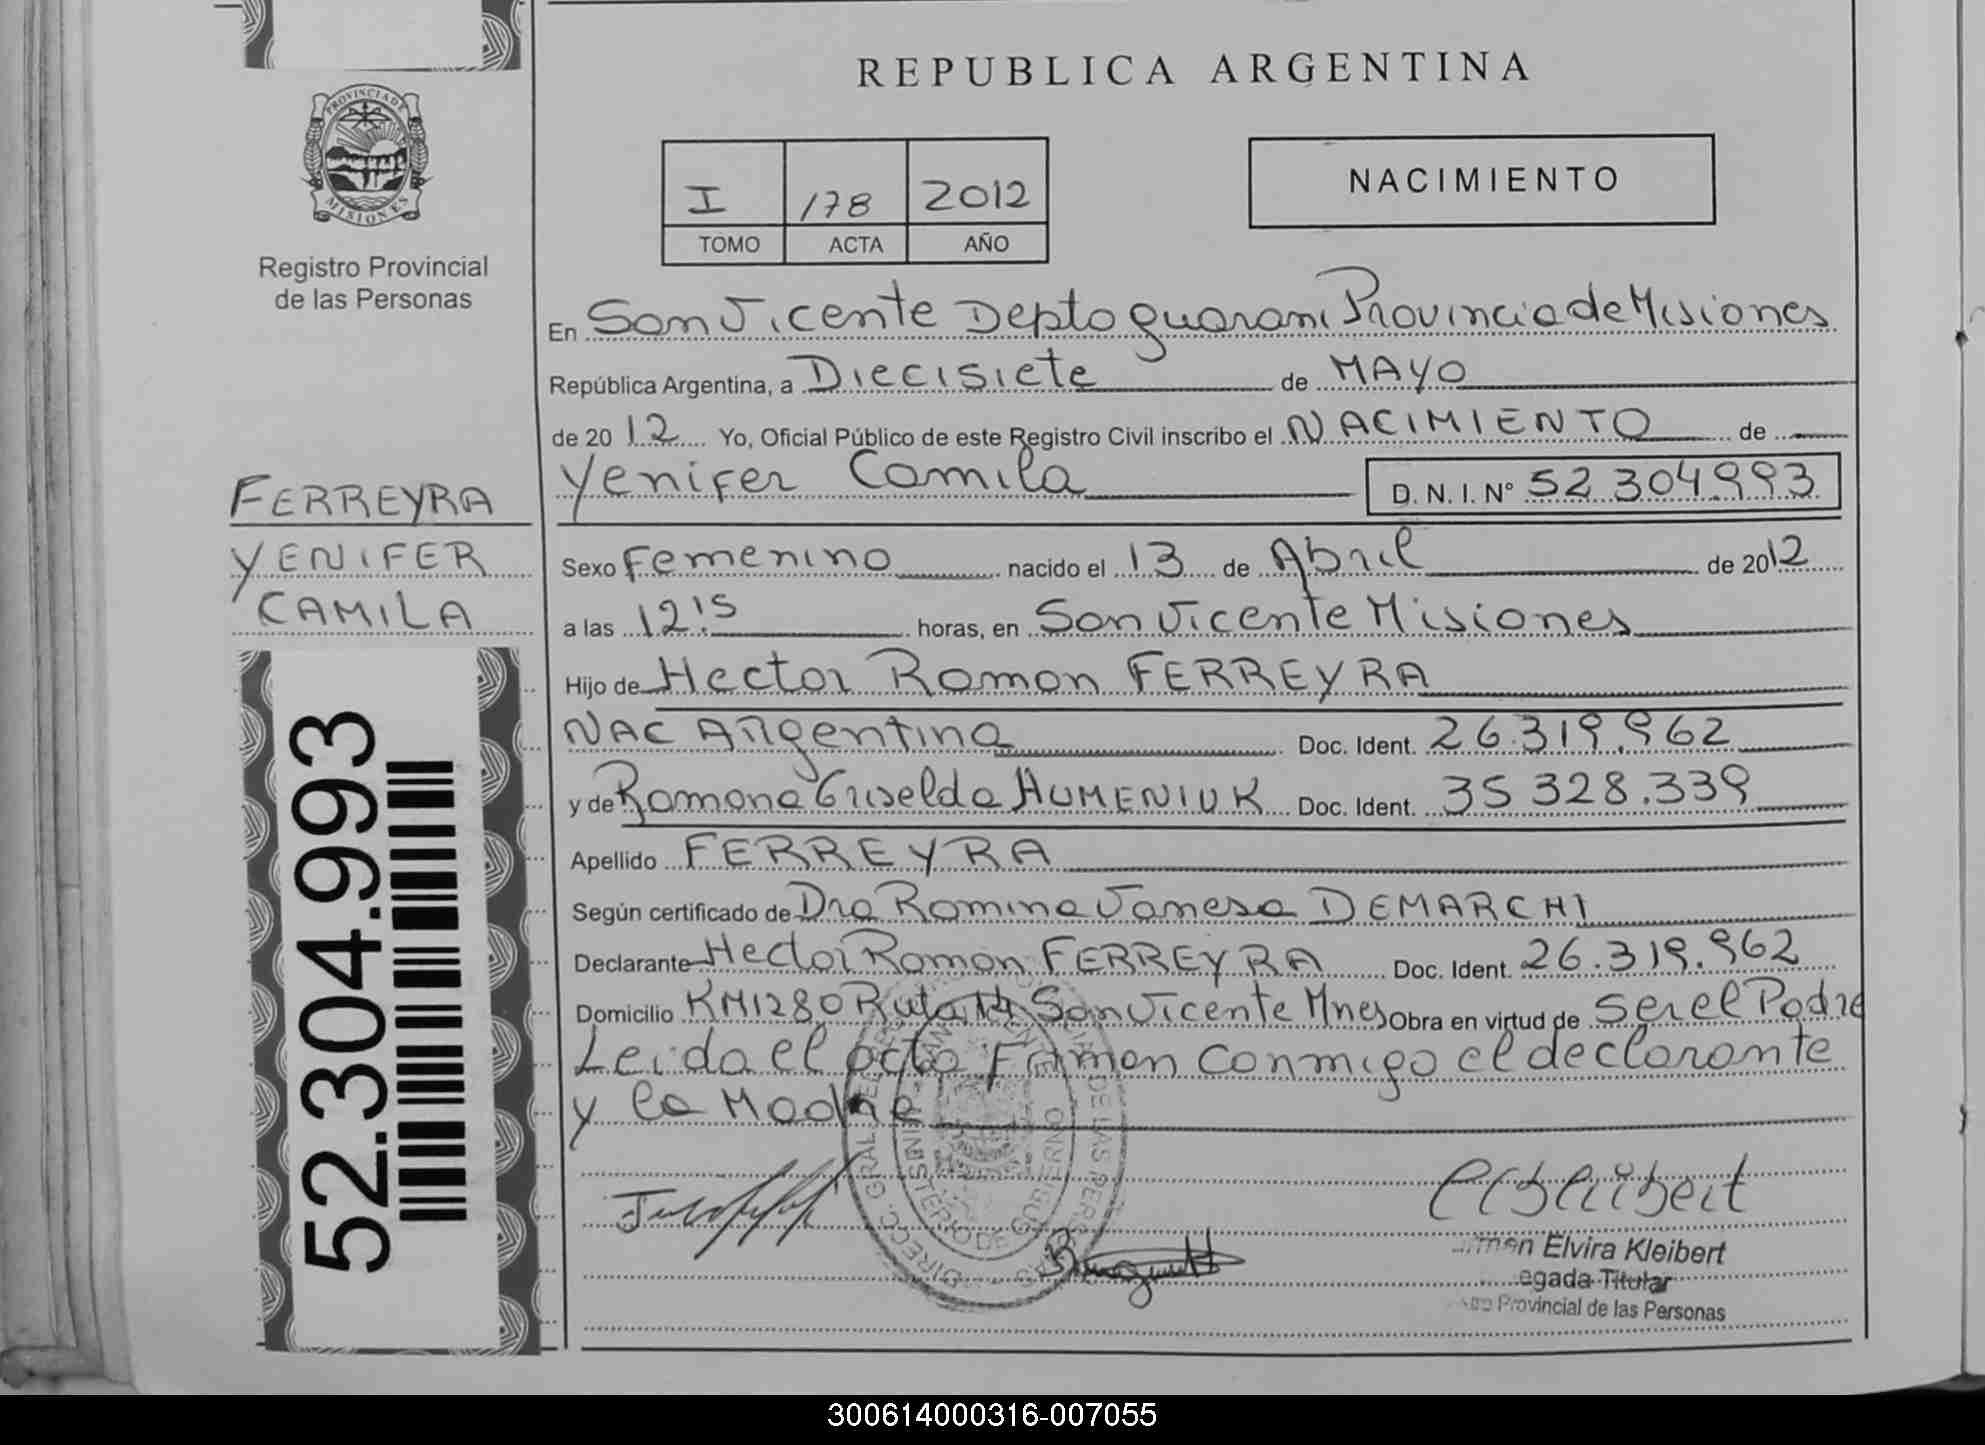 REPUBLICA ARGENTINA
PROVINCIA DE
MISIONES
Registro Provincial
de las Personas
I 178 2012
TOMO ACTA AÑO
NACIMIENTO
En San Vicente Depto guarani Provincia de Misiones
República Argentina, a Diecisiete de MAYO
de 2012 Yo, Oficial Público de este Registro Civil inscribo el NACIMIENTO de
Yenifer Camila D. N. I. Nº 52.304.993
FERREYRA
YENIFER
CAMILA
Sexo Femenino nacido el 13 de Abril de 2012
a las 12:15 horas, en San Vicente Misiones
Hijo de Hector Ramon FERREYRA
NAC Argentina Doc. Ident. 26.319.962
y de Ramona Griselda HUMENIUK Doc. Ident. 35 328.339
Apellido FERREYRA
Según certificado de Dra Romina Vanesa DEMARCHI
Declarante Hector Ramon FERREYRA Doc. Ident. 26.319.962
Domicilio KM1280 Ruta 14 San Vicente Mnes Obra en virtud de ser el Padre
Leida el acta Firman conmigo el declarante
y la Madre
52.304.993
MINISTERIO DE GOBIERNO
Elvira Kleibert
Titular
Provincial de las Personas
300614000316-007055